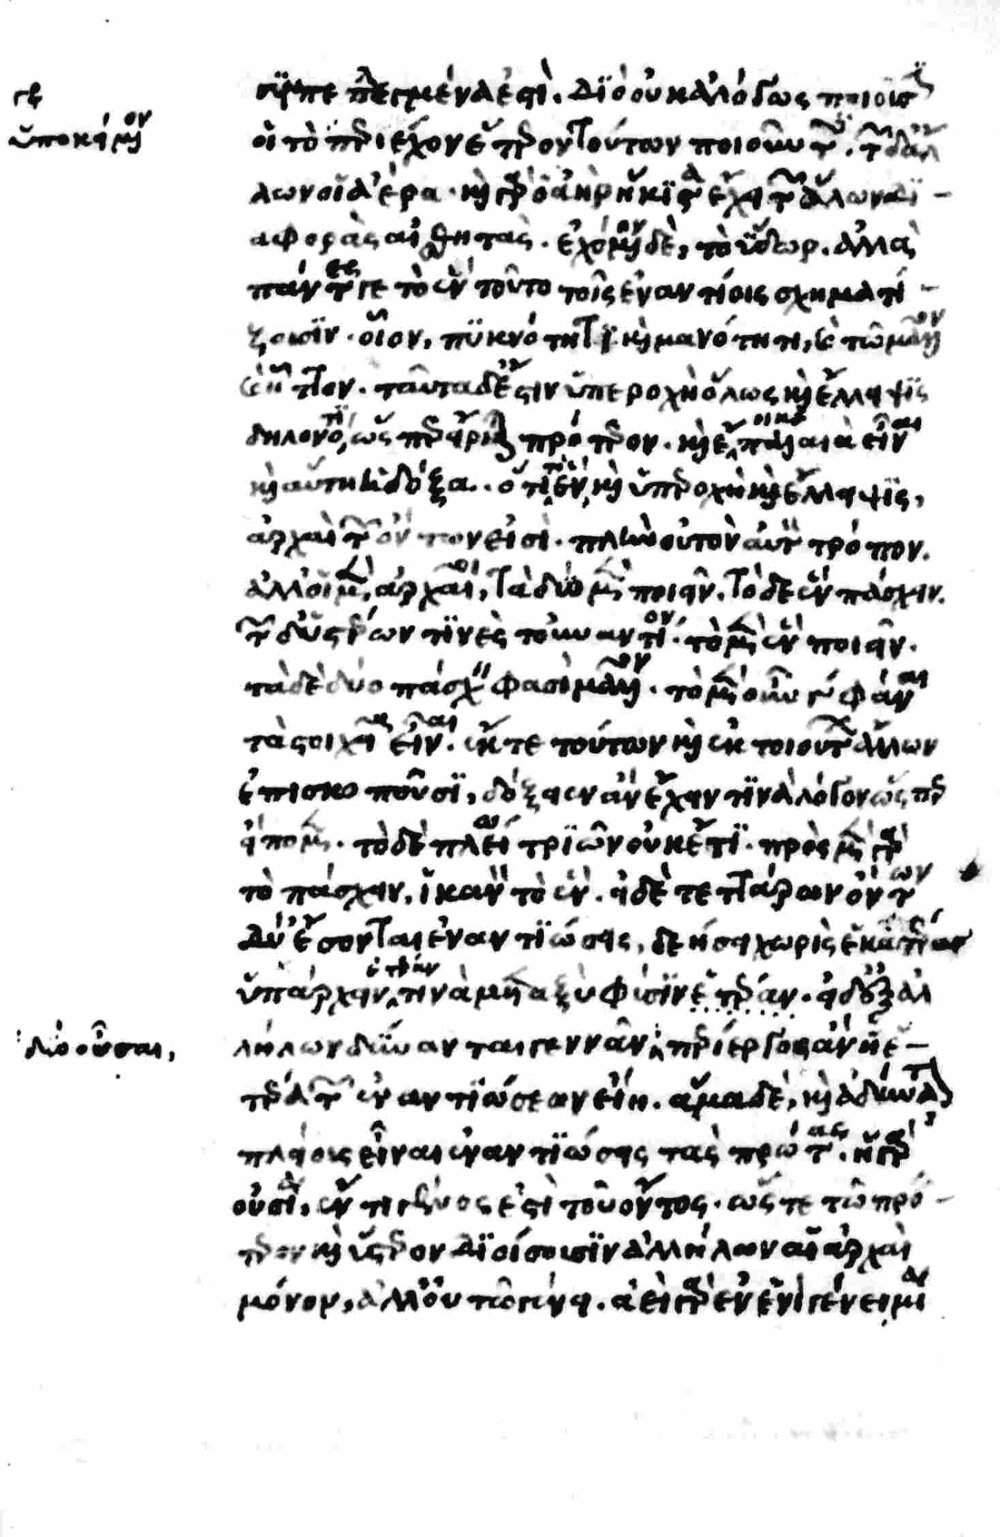 συμπεπλεγμένα ἐστί. Διὸ οὐκ ἀλόγως ποιοῦσιν
γρ
ὑποκείμενον
οἱ τὸ περιέχον ἕτερον τούτων ποιοῦντες. τῶν δ' ἄλ
λων οἱ ἀέρα· καὶ γὰρ ὁ ἀὴρ ἥκιστα ἔχει τῶν ἄλλων δι-
αφορὰς αἰσθητάς. ἐχόμενον δὲ, τὸ ὕδωρ. ἀλλὰ
πάντες γε τὸ ἓν τοῦτο τοῖς ἐναντίοις σχηματί-
ζουσιν· οἷον, πυκνότητι καὶ μανότητι, καὶ τῷ μᾶλλον
καὶ ἧττον. ταῦτα δέ ἐστιν ὑπεροχὴ ὅλως καὶ ἔλλειψις
δηλονότι, ὥσπερ εἴρηται πρότερον. καὶ ἔοικε παλαιὰ εἶναι
καὶ αὕτη ἡ δόξα. ὅτι τὸ ἓν, καὶ ὑπεροχὴ καὶ ἔλλειψις,
ἀρχαὶ τῶν ὄντων εἰσὶ. πλὴν οὐ τὸν αὐτὸν τρόπον.
ἀλλ' οἱ μὲν ἀρχαῖοι, τὰ δύο μὲν ποιεῖν. τὸ δὲ ἓν πάσχειν.
τῶν δ' ὑστέρων τινὲς τοὐναντίον. τὸ μὲν ἓν ποιεῖν.
τὰ δὲ δύο πάσχειν φασὶ μᾶλλον. τὸ μὲν οὖν γ φάναι
τὰ στοιχεῖα εἶναι. ἔκ τε τούτων καὶ ἐκ τοιούτων ἄλλων
ἐπισκοποῦσι, δόξειεν ἂν ἔχειν τινὰ λόγον ὥσπερ
εἴπομεν. τὸ δὲ πλείω τριῶν οὐκέτι. πρὸς μὲν γὰρ
τὸ πάσχειν, ἱκανὸν τὸ ἕν. εἰ δὲ τεττάρων ὄντων
δύ' ἔσονται ἐναντιώσεις, δεήσει χωρὶς ἑκατέρᾳ
ὑπάρχειν ἑτέραν τινὰ μεταξὺ φύσιν ἑτέραν. εἰ δ' ἐξ ἀλ
δύο οὖσαι,
λήλων δύνανται γεννᾶν, περίεργος ἂν ἡ ἑ-
τέρα τῶν ἐναντιώσεων εἴη. ἅμα δὲ, καὶ ἀδύνατον
πλείους εἶναι ἐναντιώσεις τὰς πρώτας. ἡ γὰρ
οὐσία, ἕν τι γένος ἐστὶ τοῦ ὄντος. ὥστε τῷ πρό-
τερον καὶ ὕστερον διοίσουσιν ἀλλήλων αἱ ἀρχαὶ
μόνον, ἀλλ' οὐ τῷ γένει. ἀεὶ γὰρ ἐν ἑνὶ γένει μία